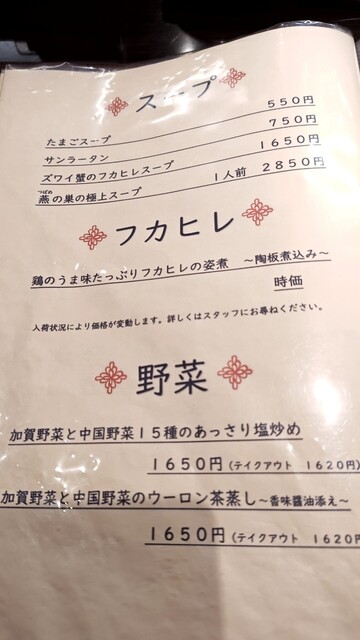 スープ
たまごスープ 550円
サンラータン 750円
ズワイ蟹のフカヒレスープ 1650円
燕の巣の極上スープ 1人前 2850円
つばめ
フカヒレ
鶏のうま味たっぷりフカヒレの姿煮 ～陶板煮込み～
時価
入荷状況により価格が変動します。詳しくはスタッフにお尋ねください。
野菜
加賀野菜と中国野菜15種のあっさり塩炒め
1650円 (テイクアウト 1620円)
加賀野菜と中国野菜のウーロン茶蒸し～香味醤油添え～
1650円 (テイクアウト 1620円